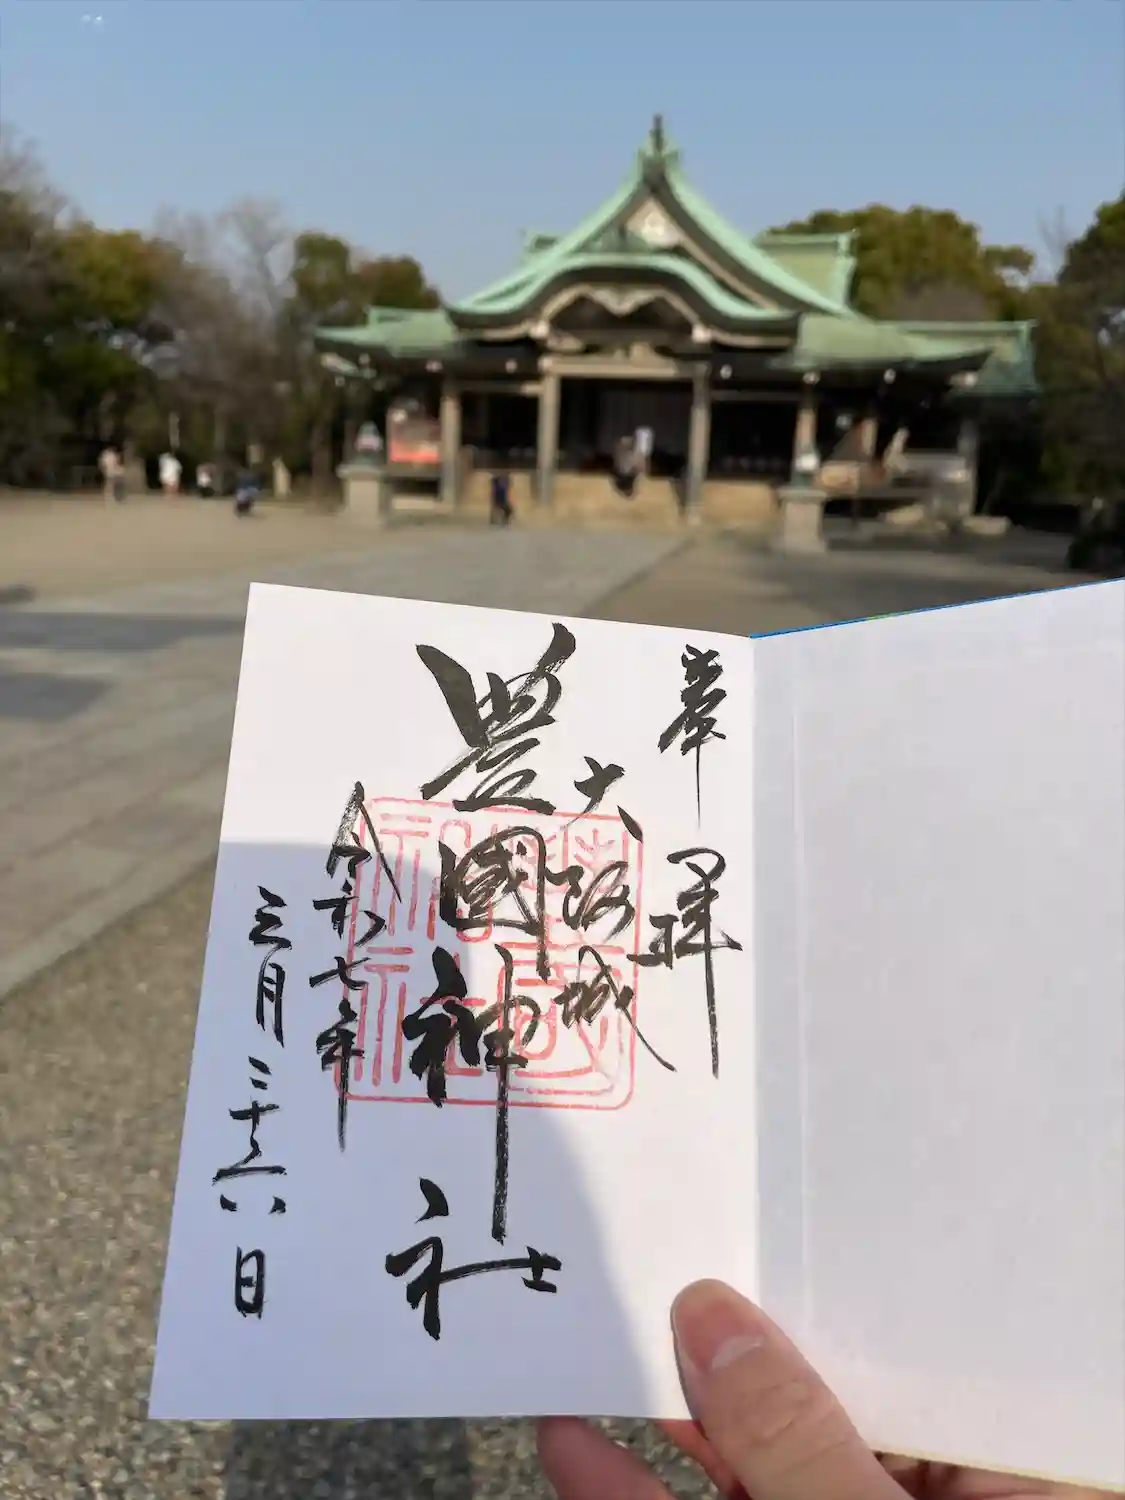 奉拝
大阪城
豊國神社
令和七年
三月二十六日